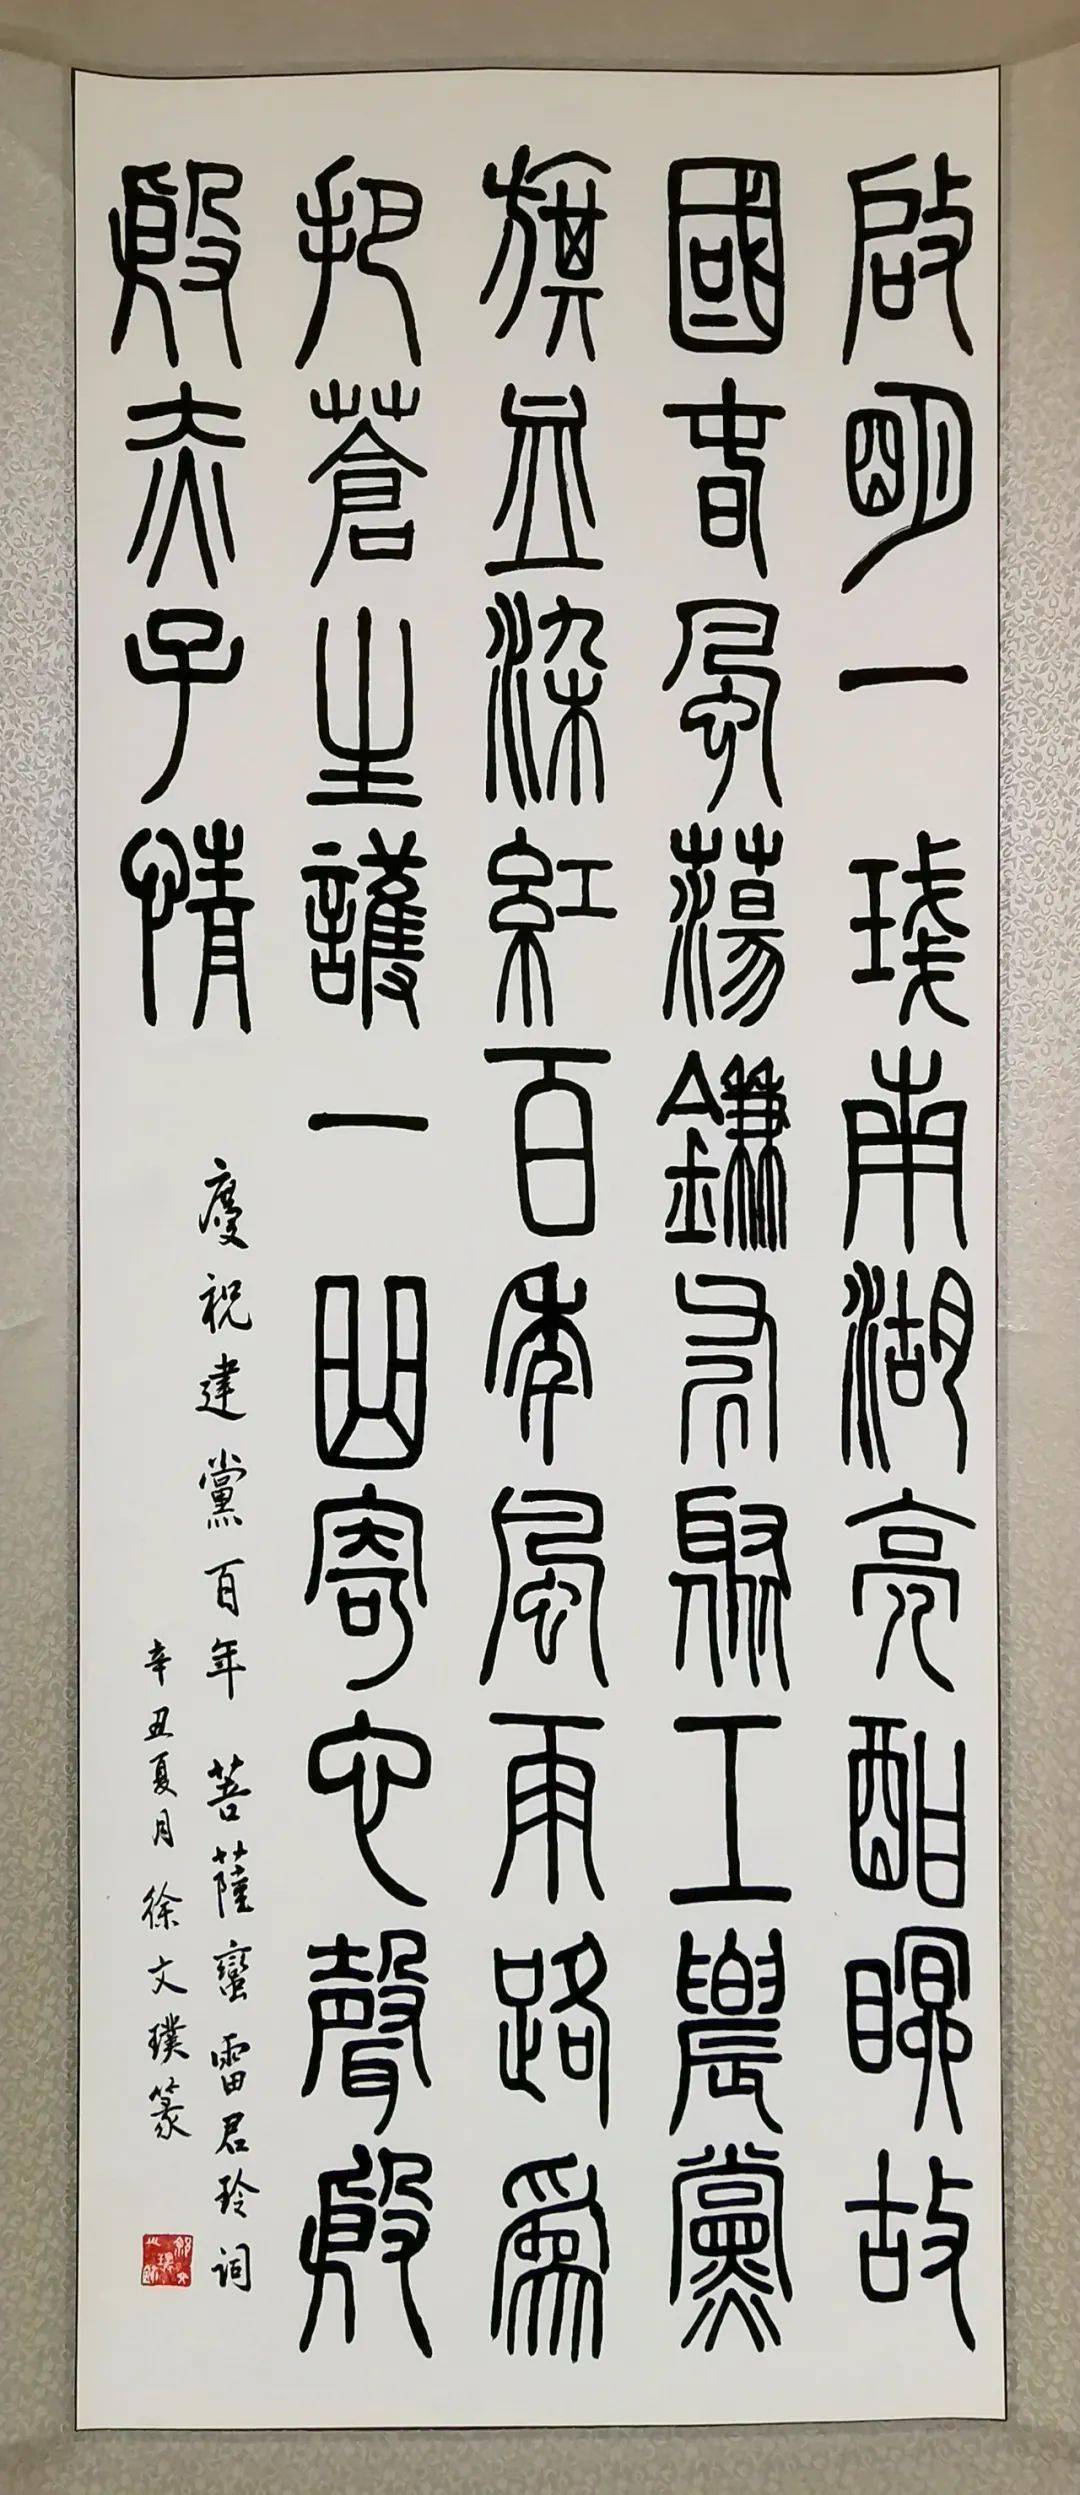 啟明一琖南湖亮酣瞑故
國春風蕩鐮斧聚工農黨
旗血染紅百年風雨路為
把蒼生護一曲寄心聲殷
殷赤子情
慶祝建黨百年 菩薩蠻 雷君玲詞
辛丑夏月 徐文璞篆